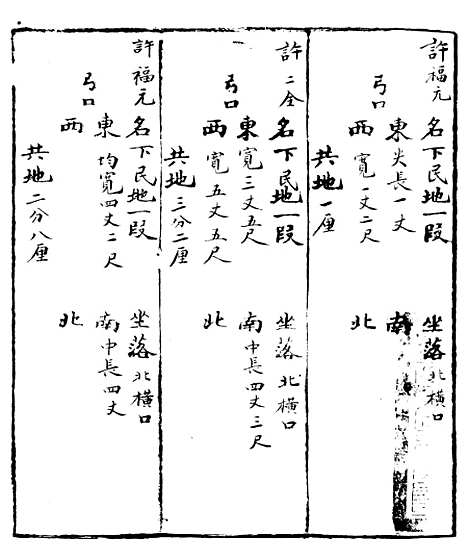 許福元名下民地一段 坐落北橫口
弓口 東尖長一丈 南
西寬一丈二尺 北
共地一厘
許二全名下民地一段 坐落北橫口
弓口 東寬三丈五尺 南中長四丈三尺
西寬五丈五尺 北
共地三分二厘
許福元名下民地一段 坐落北橫口
弓口 東均寬四丈二尺 南中長四丈
西 北
共地二分八厘